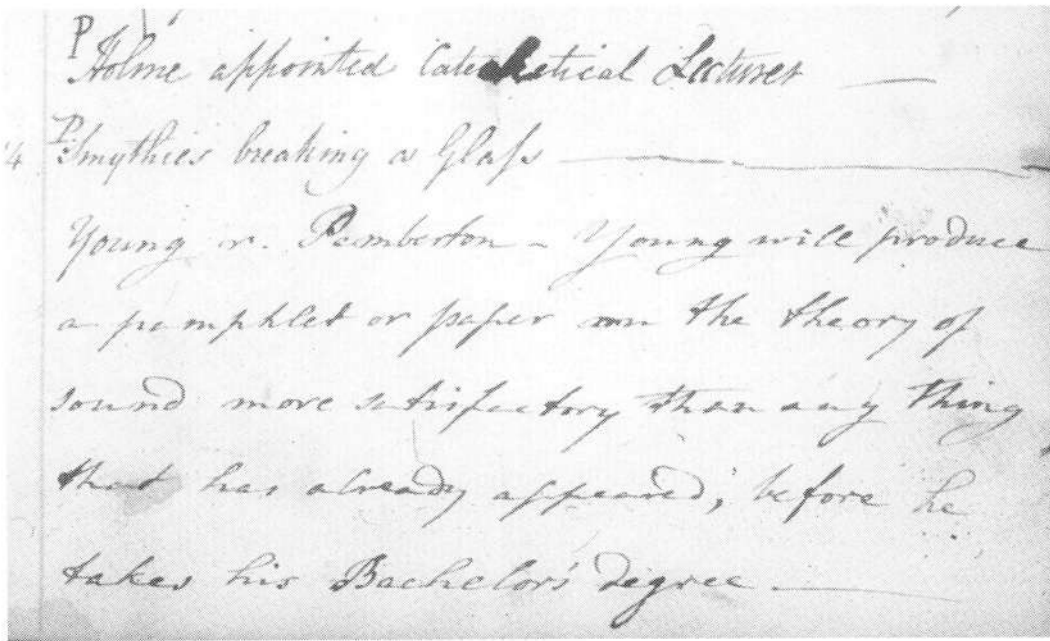 P Holme appointed Catechetical Lecturer —
4 P. Smythies breaking a Glaſs —
Young v. Pemberton – Young will produce
a pamphlet or paper on the theory of
sound more satisfactory than any thing
that has already appeared, before he
takes his Bachelor's degree —